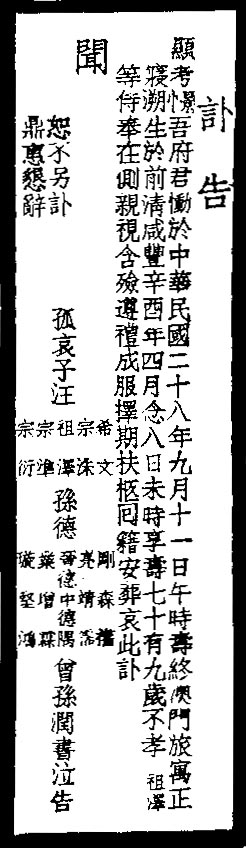 訃告
顯考憬吾府君慟於中華民國二十八年九月十一日午時壽終澳門旅寓正
寢溯生於前清咸豐辛酉年四月念八日未時享壽七十有九歲不孝祖澤
等侍奉在側親視含殮遵禮成服擇期扶柩回籍安葬哀此訃
聞
恕不另訃
鼎惠懇辭
孤哀子汪 希文 宗洙 祖澤 宗準 宗衍
孫德 剛 森 亮 靖 晉德中德隅 業 增 霖 璇 堅 鴻
曾孫潤書泣告